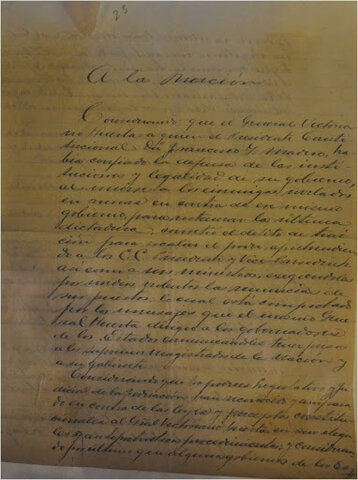 23
A la Nación
Considerando que el General Victoria
no Huerta a quien el Presidente Consti
tucional Don Francisco I. Madero, ha
bía confiado la defensa de las insti
tuciones y legalidad de su gobierno,
al unirse a los enemigos rebelados
en armas en contra de ese mismo
gobierno, para restaurar la última
dictadura, cometió el delito de trai
ción para escalar el poder, aprehendien
do a los C.C. Presidente y Vice-Presidente
así como a sus ministros, exigiéndoles
por medios violentos las renuncias de
sus puestos, lo cual está comprobado
por los mensajes que el mismo Gene
ral Huerta dirigió a los Gobernadores
de los Estados comunicándoles tener presos
a los Supremos Magistrados de la Nación y
a su Gabinete.
Considerando que los poderes Legislativo y Ju
dicial de la Federación han reconocido y ampara
do en contra de las leyes y preceptos constitu
cionales al Gral Victoriano Huerta y sus ilega
les y antipatrióticos procedimientos, y consideran
do por último que algunos gobiernos de los Es